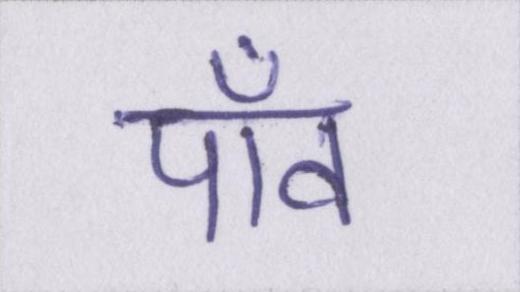 पाँव